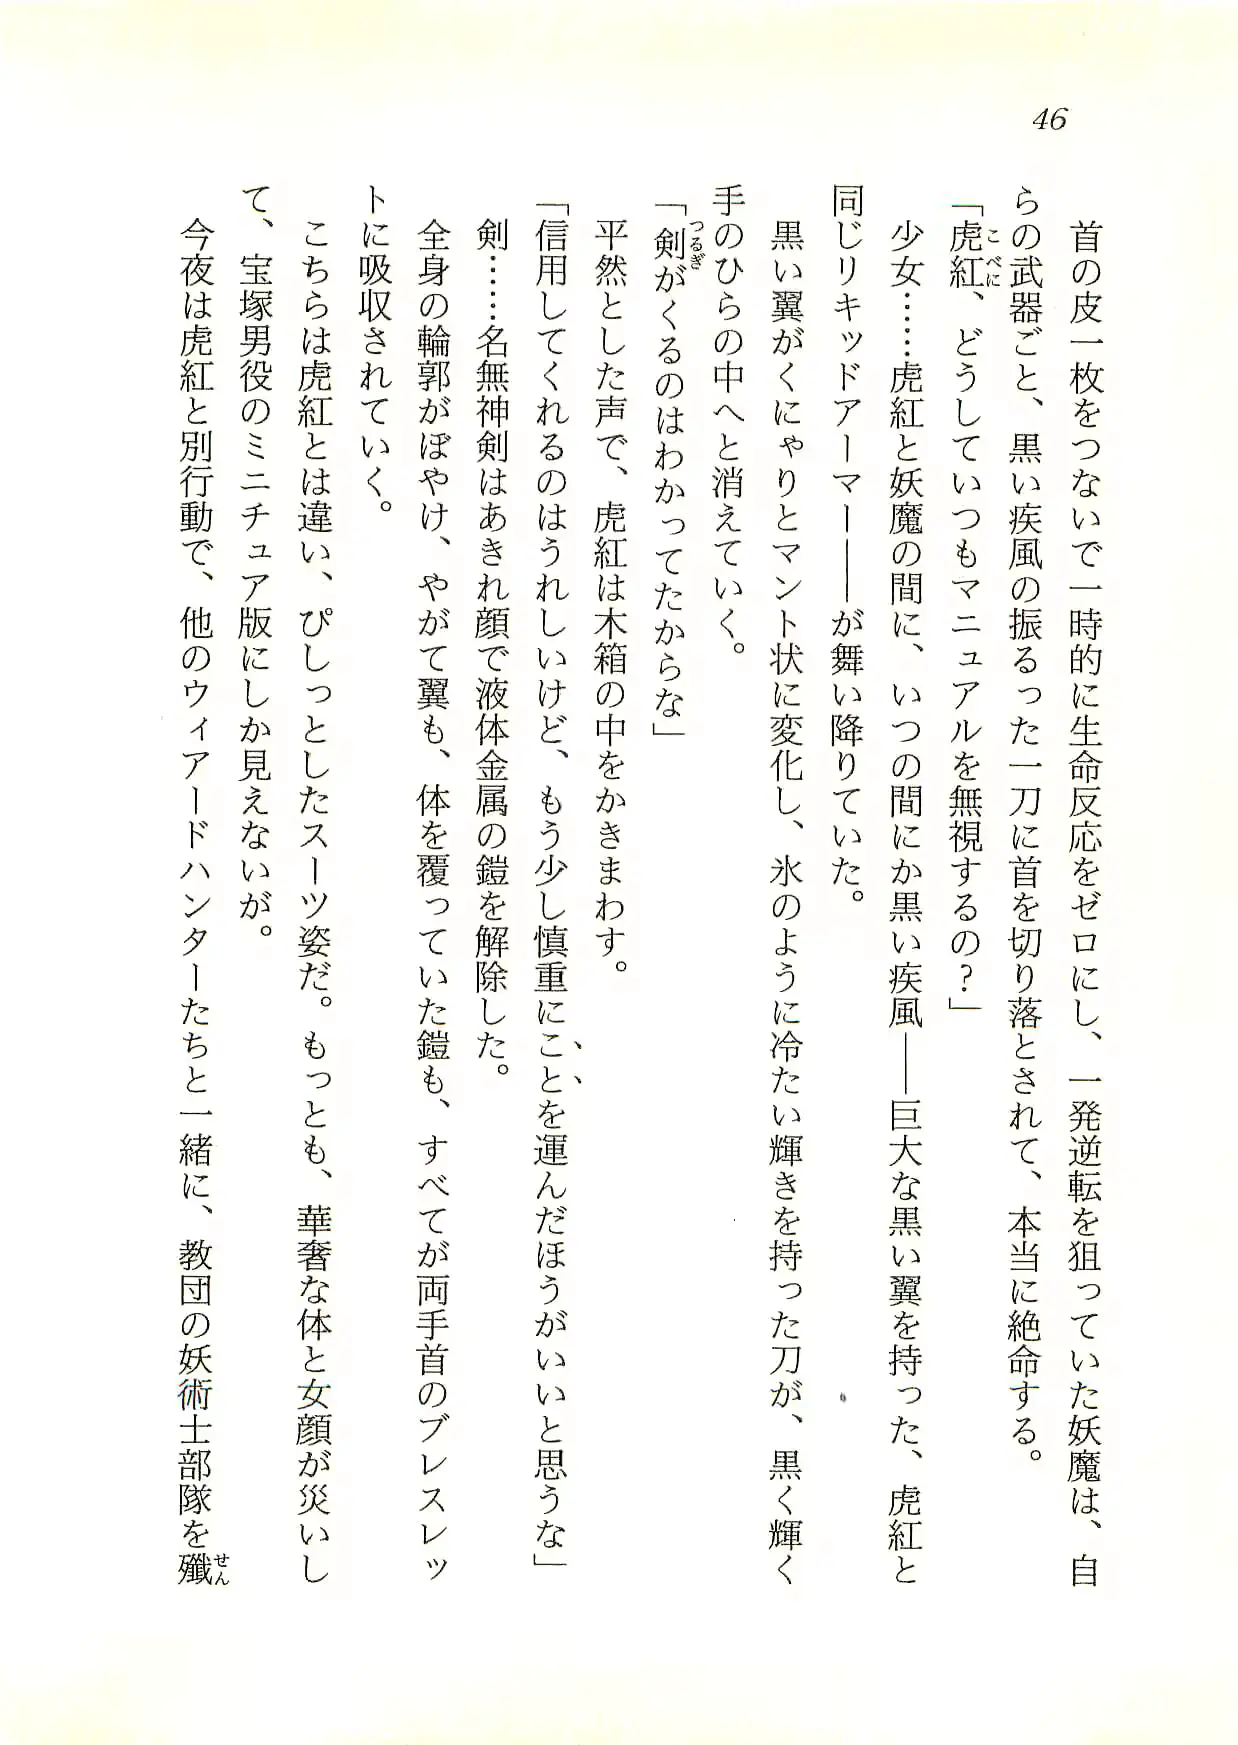 46
首の皮一枚をつないで一時的に生命反応をゼロにし、一発逆転を狙っていた妖魔は、自
らの武器ごと、黒い疾風の振るった一刀に首を切り落とされて、本当に絶命する。
「虎紅、どうしていつもマニュアルを無視するの？」
こべに
少女……虎紅と妖魔の間に、いつの間にか黒い疾風――巨大な黒い翼を持った、虎紅と
同じリキッドアーマー――が舞い降りていた。
黒い翼がくにゃりとマント状に変化し、氷のように冷たい輝きを持った刀が、黒く輝く
手のひらの中へと消えていく。
「剣がくるのはわかってたからな」
つるぎ
平然とした声で、虎紅は木箱の中をかきまわす。
「信用してくれるのはうれしいけど、もう少し慎重にことを運んだほうがいいと思うな」
剣……名無神剣はあきれ顔で液体金属の鎧を解除した。
全身の輪郭がぼやけ、やがて翼も、体を覆っていた鎧も、すべてが両手首のブレスレッ
トに吸収されていく。
こちらは虎紅とは違い、ぴしっとしたスーツ姿だ。もっとも、華奢な体と女顔が災いし
て、宝塚男役のミニチュア版にしか見えないが。
今夜は虎紅と別行動で、他のウィアードハンターたちと一緒に、教団の妖術士部隊を殲
せん